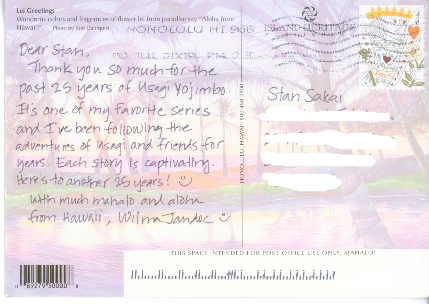 Lei Greetings
Wondrous colors and fragrances of flower lei from paradise say "Aloha from
Hawaii". Photo by Ron Dahlquist
HONOLULU HI 968
ISLAND HERITAGE
Dear Stan,
Thank you so much for the
past 25 years of Usagi Yojimbo.
It's one of my favorite series
and I've been following the
adventures of usagi and friends for
years. Each story is captivating.
Here's to another 25 years!
With much mahalo and aloha
from Hawaii, Wilma Jandoc
Stan Sakai
HONOLULU, HAWAII
THIS SPACE INTENDED FOR POST OFFICE USE ONLY, MAHALO!